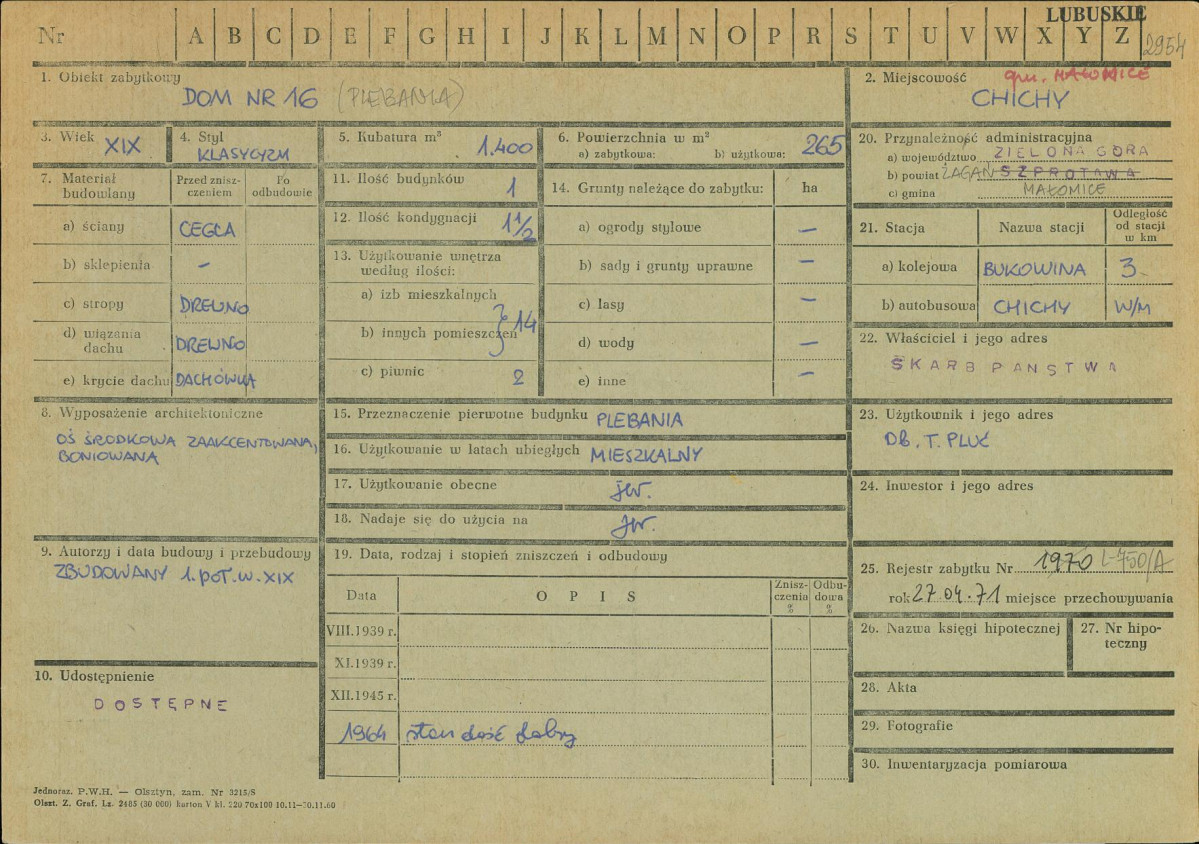 LUBUSKIE
Nr A B C D E F G H I J K L M N O P R S T U V W X Y Z 2954
1. Obiekt zabytkowy
DOM NR 16 (PLEBANIA)
2. Miejscowość gm. MAŁOMICE
CHICHY
3. Wiek XIX
4. Styl KLASYCYZM
5. Kubatura m³ 1.400
6. Powierzchnia w m²
a) zabytkowa: b) użytkowa: 265
7. Materiał budowlany
Przed znisz-
czeniem
Po
odbudowie
a) ściany CEGŁA
b) sklepienia –
c) stropy DREWNO
d) wiązania
dachu DREWNO
e) krycie dachu DACHÓWKA
8. Wyposażenie architektoniczne
OŚ ŚRODKOWA ZAAKCENTOWANA,
BONIOWANA
9. Autorzy i data budowy i przebudowy
ZBUDOWANY 1. POŁ. W. XIX
10. Udostępnienie
DOSTĘPNE
11. Ilość budynków 1
12. Ilość kondygnacji 1 1/2
13. Użytkowanie wnętrza
według ilości:
a) izb mieszkalnych
b) innych pomieszczeń } 14
c) piwnic 2
14. Grunty należące do zabytku: ha
a) ogrody stylowe –
b) sady i grunty uprawne –
c) lasy –
d) wody –
e) inne –
15. Przeznaczenie pierwotne budynku PLEBANIA
16. Użytkowanie w latach ubiegłych MIESZKALNY
17. Użytkowanie obecne jw.
18. Nadaje się do użycia na jw.
19. Data, rodzaj i stopień zniszczeń i odbudowy
Data OPIS Znisz-
czenia
% Odbu-
dowa
%
VIII.1939 r.
XI.1939 r.
XII.1945 r.
1964 stan dość dobry
20. Przynależność administracyjna
a) województwo ZIELONA GÓRA
b) powiat ŻAGAŃ SZPROTAWA
c) gmina MAŁOMICE
21. Stacja Nazwa stacji Odległość
od stacji
w km
a) kolejowa BUKOWINA 3
b) autobusowa CHICHY W/M
22. Właściciel i jego adres
SKARB PAŃSTWA
23. Użytkownik i jego adres
DB. T. PLUĆ
24. Inwestor i jego adres
25. Rejestr zabytku Nr 1970 L-750/A
rok 27.04.71 miejsce przechowywania
26. Nazwa księgi hipotecznej
27. Nr hipo-
teczny
28. Akta
29. Fotografie
30. Inwentaryzacja pomiarowa
Jednoraz. P.W.H. — Olsztyn, zam. Nr 3215/S
Olszt. Z. Graf. Lz. 2485 (30 000) karton V kl. 220 70x100 10.11—30.11.60